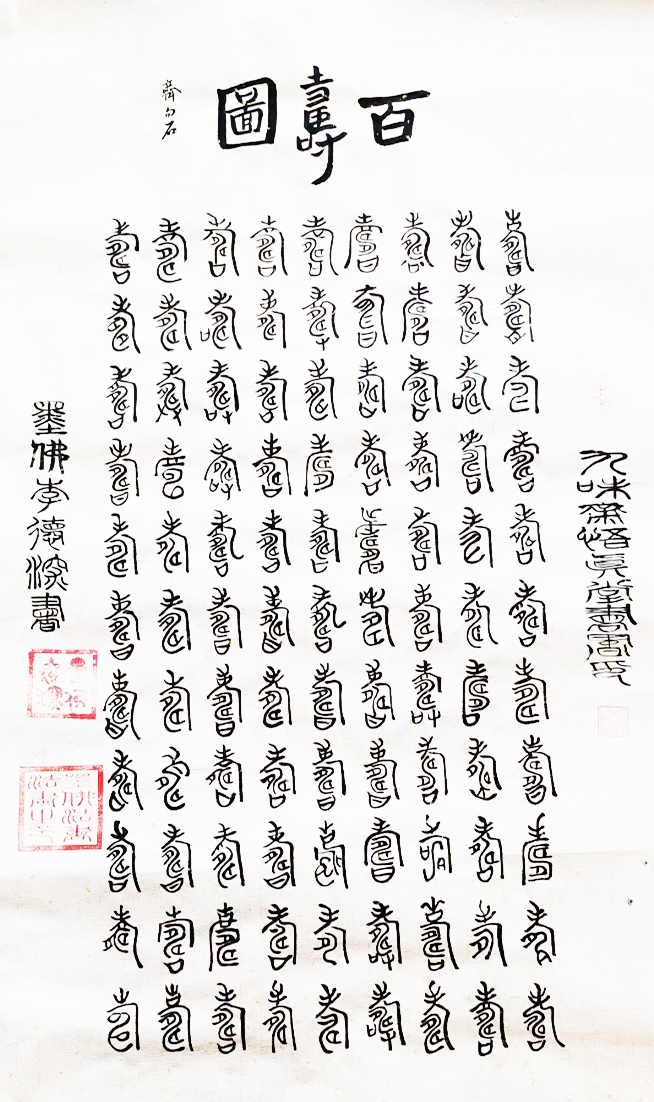 百壽圖
齊白石
九味齋悟眞堂書
壽壽壽壽壽壽壽壽壽壽壽
壽壽壽壽壽壽壽壽壽壽壽
壽壽壽壽壽壽壽壽壽壽壽
壽壽壽壽壽壽壽壽壽壽壽
壽壽壽壽壽壽壽壽壽壽壽
壽壽壽壽壽壽壽壽壽壽壽
壽壽壽壽壽壽壽壽壽壽壽
壽壽壽壽壽壽壽壽壽壽壽
壽壽壽壽壽壽壽壽壽壽壽
墨佛李德深書